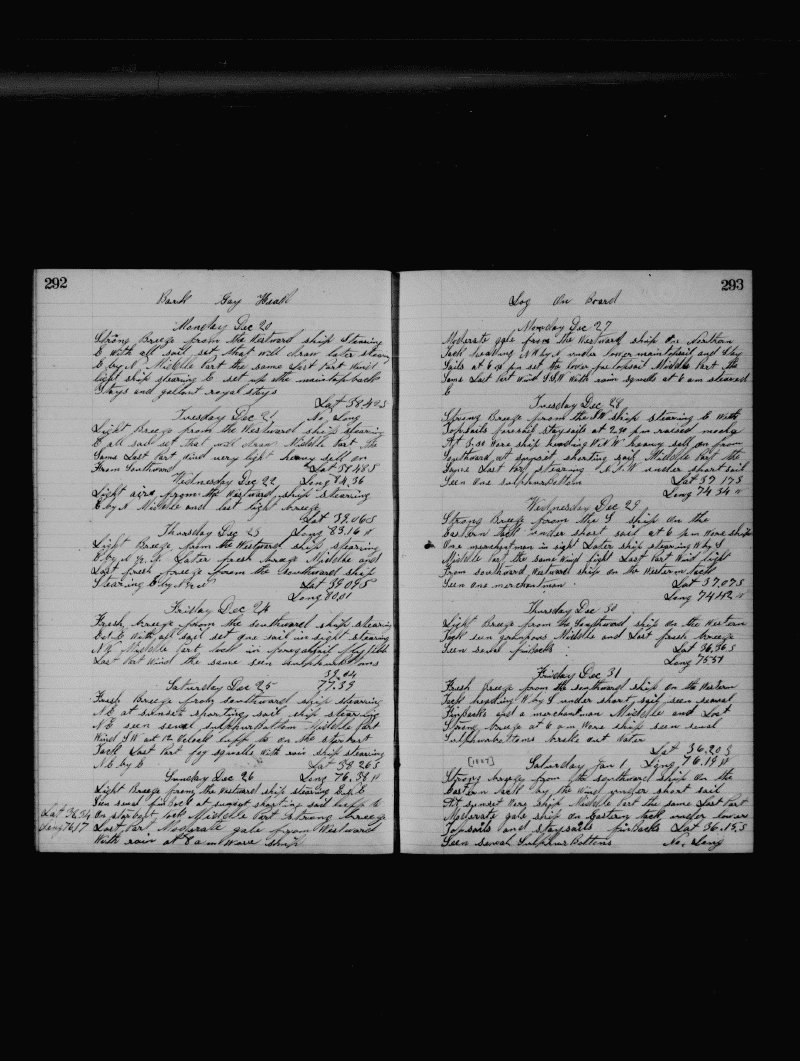 292
Bark Gay Head
Monday Dec 20
Strong Breeze from the Westward ship Steering
E With all sail set that will draw later steering
E by N Middle Part the same Last Part Wind
light ship steering E set up the maintop back
Stays and gallant royal stays
Lat 38.40 S
Tuesday Dec 21 No Long
Light Breeze from the Westward ship steering
E all sail set that will draw Middle Part the
Same Last Part Wind very light heavy sell on
From Southward Lat 38.48 S
Wednesday Dec 22 Long 84.36
Light airs from the Westward ship steering
E by N Middle and last light breeze
Lat 39.06 S
Thursday Dec 23 Long 83.16 W
Light Breeze from the Westward ship steering
E by N Later fresh breeze Middle and
Last fresh breeze from the Southward ship
Stearing E by N Lat 39.09 S
Long 80.01
Friday Dec 24
Fresh breeze from the southward ship stearing
E With all sail set one sail in sight stearing
N W Middle Part took in foregallsail
Last Part Wind the same seen sulphurbottoms
39.04
Saturday Dec 25 77.39
Fresh Breeze from southward ship stearing
N E at sunset shorting sail ship stearing
N E seen seval sulphurbottom Middle Part
Wind S W at 12 Oclock luff to on the starbort
Tack Last Part fog squalls With rain ship stearing
N E by E Lat 38.26 S
Sunday Dec 26 Long 76.38 W
Light Breeze from the Westward ship stearing E by E
Seen seval finback at sunset shorting sail luff to
Lat 36.34 On starbort tack Middle Part Strong breeze
Long 76.17 Last Part Moderate gale from Westward
With rain at 8 am Wore ship
293
Log On Board
Monday Dec 27
Moderate gale from the Westward ship On Northern
Tack heading N W by N under lower maintopsail and
Sails at 6 pm set the lower foretopsail Middle Part the
Same Last Part Wind S S W With rain squalls at 6 am steared
E
Tuesday Dec 28
Strong Breeze from the S W ship stearing E With
Topsails foresail staysails at 2.30 pm raised
At 5.30 Wore ship heading W N W heavy sell on from
Southward at sunset shorting sail Middle Part the
Same Last Part stearing S W under short sail
Seen One sulphurbottom Lat 37.17 S
Long 74.34 W
Wednesday Dec 29
Strong Breeze from the S ship on the
Eastern Tack under short sail at 6 pm Wore ship
One merchantmen in sight Later ship stearing W by S
Middle Part the same Wind light Last Part Wind light
From southward Westward ship on the Western Tack
Seen one merchantman Lat 37.07 S
Long 74.42 W
Thursday Dec 30
Light Breeze from the Southward ship on the Western
Tack seen Middle and Last fresh breeze
Seen seval finbacks Lat 36.36 S
Long 75.51
Friday Dec 31
Fresh Breeze from the southward ship on the Western
Tack heading W by S under short sail seen seval
Finbacks and a merchantman Middle and Last
Strong breeze at 6 am Wore ship seen seval
Sulphurbottoms breake out Water
Lat 36.20 S
[1897] Saturday Jan 1, Long 76.19 W
Strong breeze from the southward ship On the
Eastern tack by the Wind under short sail
At sunset Wore ship Middle Part the same Last Part
Moderate gale ship on Eastern tack under lower
Topsails and staysails finbacks Lat 36.15 S
Seen seval Sulphur Bottoms No. Long